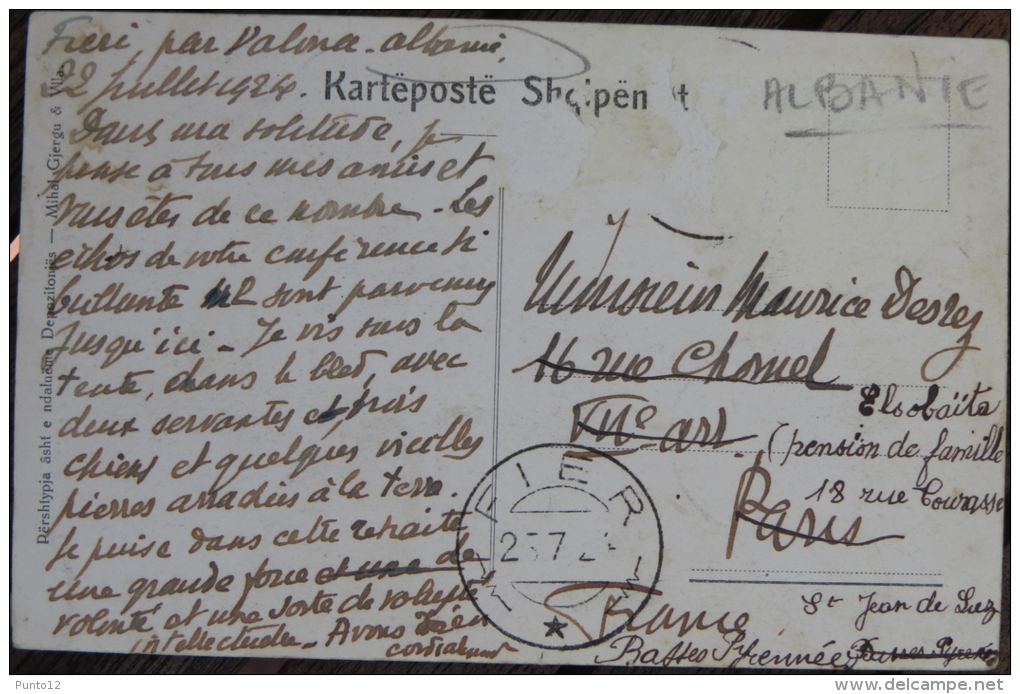 Fieri, par Valona - albanie
22 juillet 1924.
Dans ma solitude, je
pense à tous mes amis et
vous êtes de ce nombre - Les
échos de votre conférence si
brillante 2 sont parvenus
jusqu'ici - Je vis sous la
tente, dans le bled, avec
deux servantes et trois
chiens et quelques vieilles
pierres arrachées à la terre.
Je puise dans cette retraite
une grande force et une de
volonté et une sorte de volupté
intellectuelle - A vous bien
cordialement
Përshtypja âsht e ndalueme Depozitoriës — Mihal Gjergu & Vlla
Kartëpostë Shqipën t
ALBANIE
Monsieur Maurice Desrez
16 rue Chomel
VIIe arr.
Paris
France
Elsobaïta
(pension de famille
18 rue Tourasse
St Jean de Luz
Basses Pyrennées Basses Pyrénées
FIER
23.7.24
Punto12